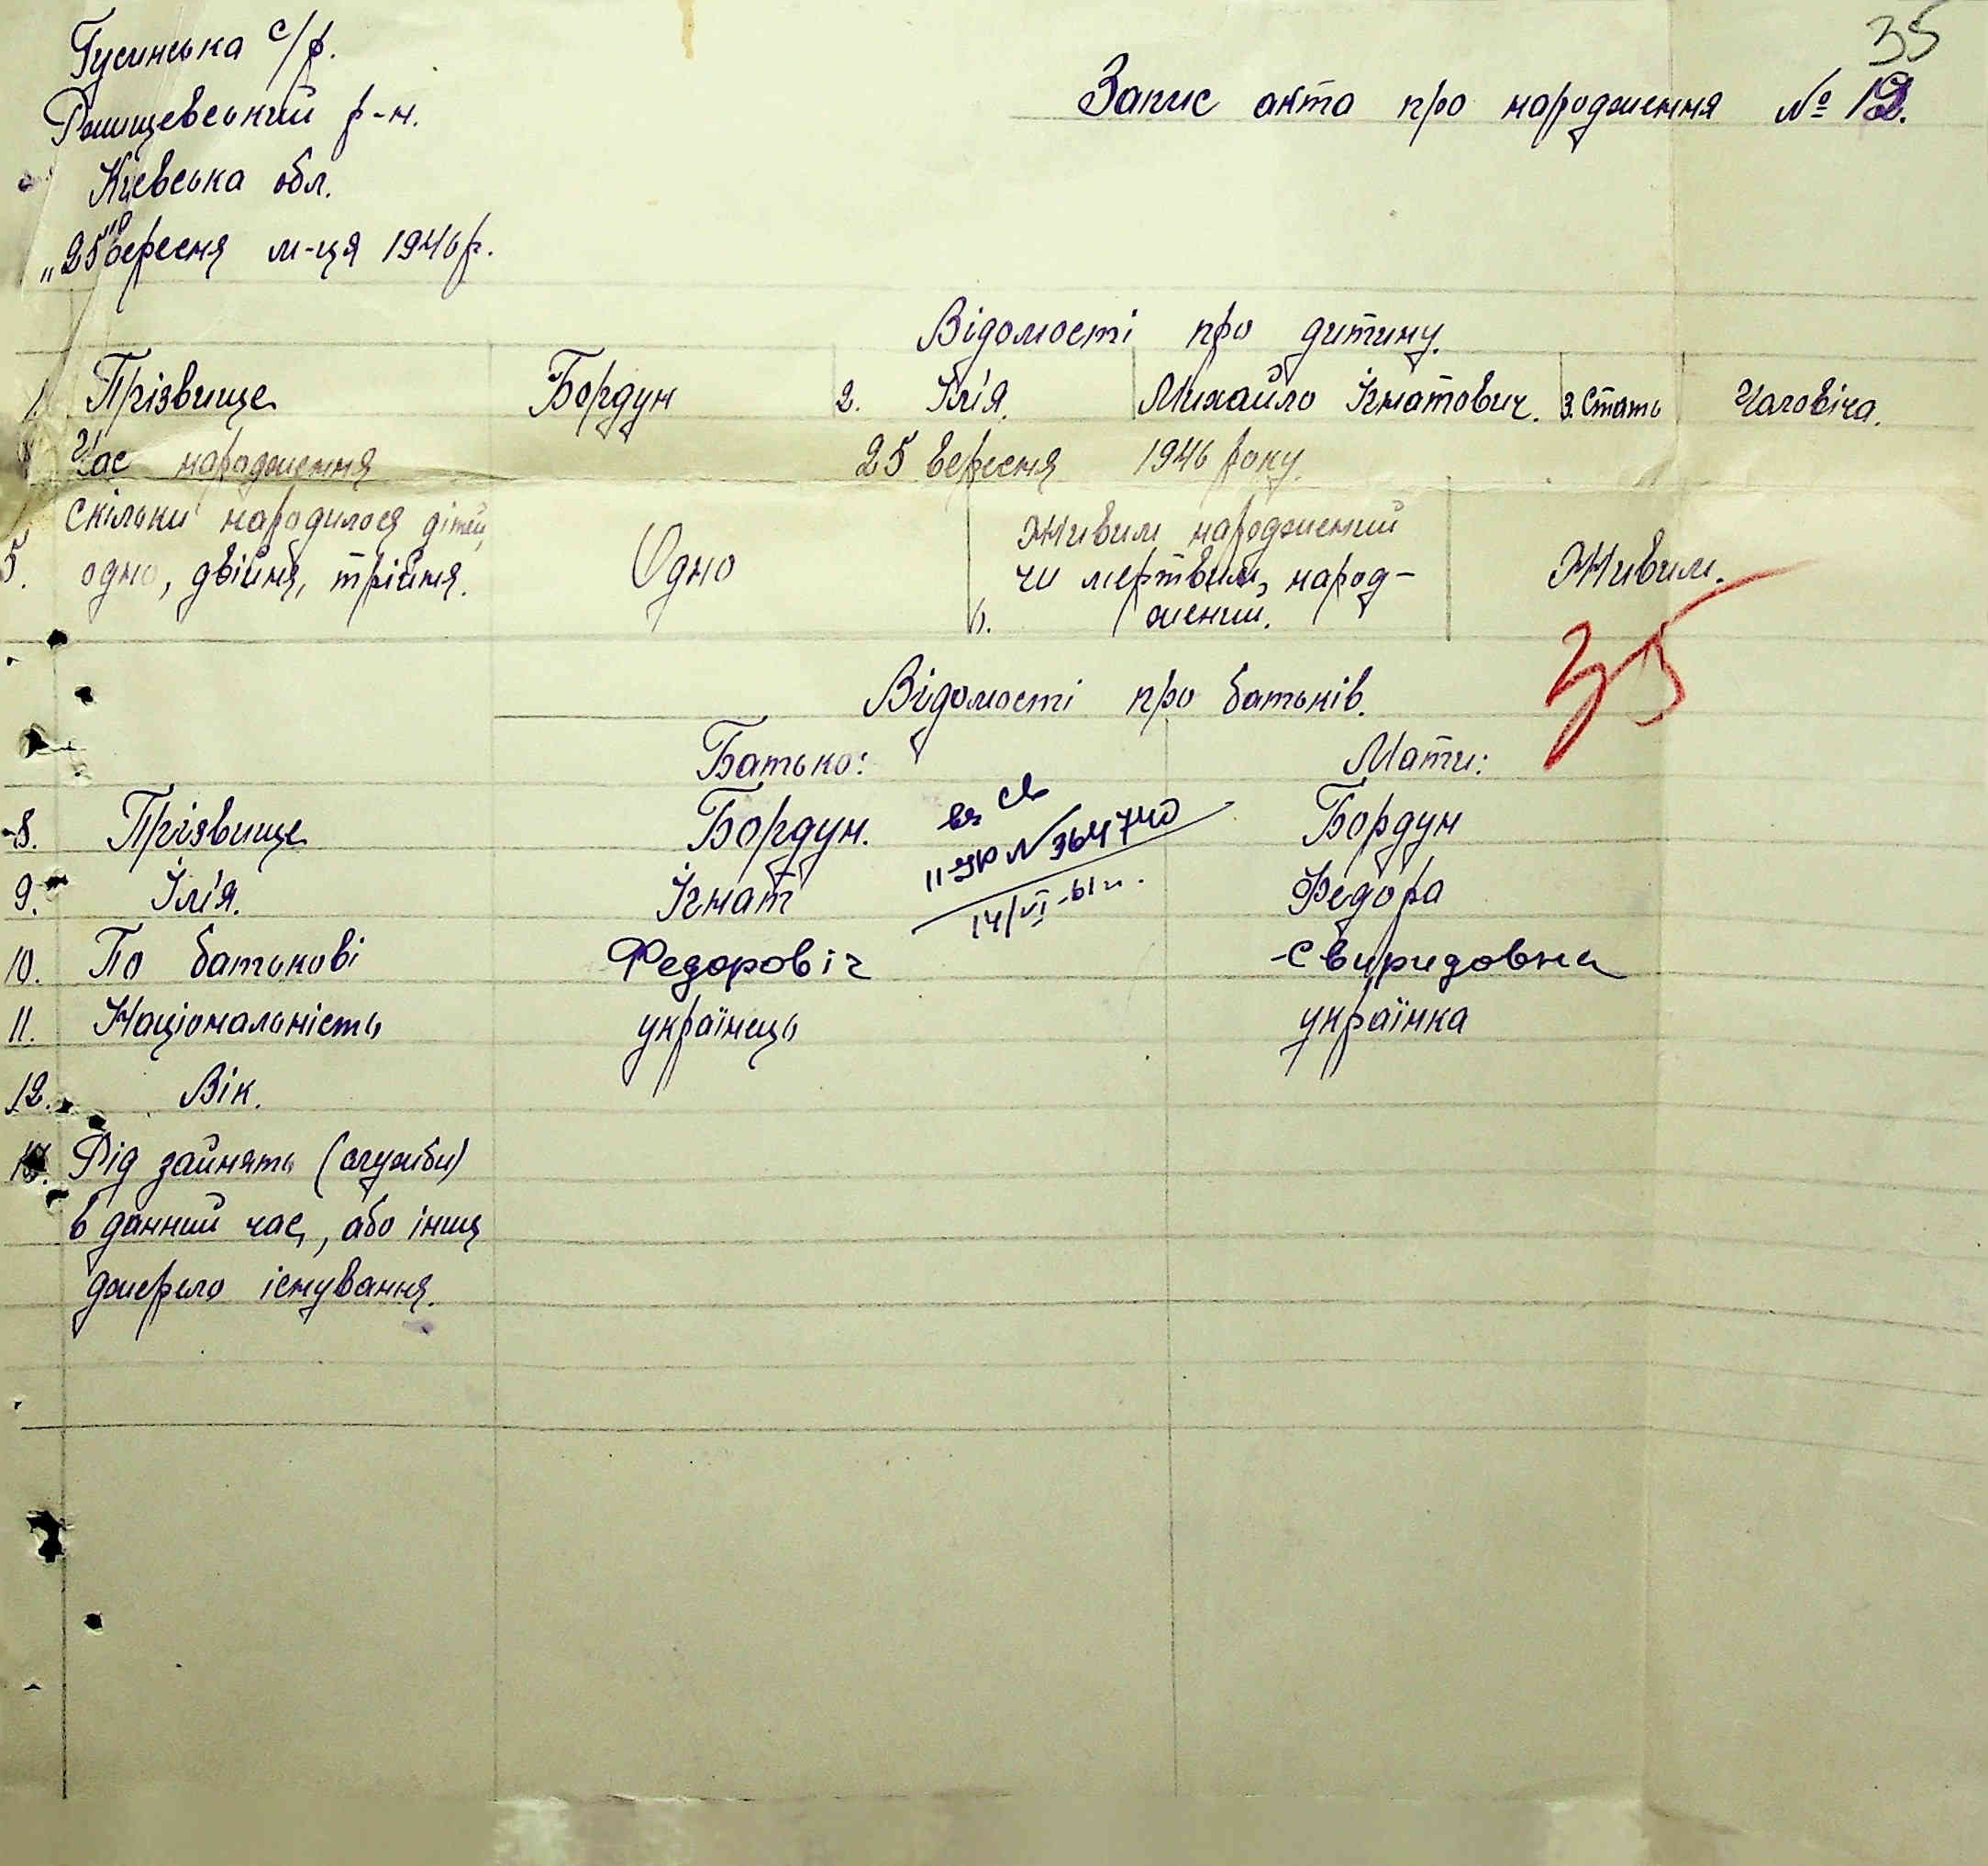 35
Гусинська с/р.
Ржищевський р-н.
Київська обл.
„25" вересня м-ця 1946 р.
Запис акта про народження № 12.
Відомості про дитину.
1. Прізвище Бордун 2. Ім'я. Михайло Ігнатович. 3. Стать Чоловіча.
Час народження 25 вересня 1946 року.
5. Скільки народилося дітей, одно, двійня, трійня. Одно
6. Живим народжений чи мертвим, народжений. Живим.
35
Відомості про батьків.
Батько: Мати:
8. Прізвище Бордун. Бордун
9. Ім'я. Ігнат Федора
10. По батькові Федоровіч Свиридовна
11. Національність українець українка
12. Вік.
Рід зайнять (служби)
в данний час, або інщ
джерело існування.
II-УР № 364740
14/VI-61г.